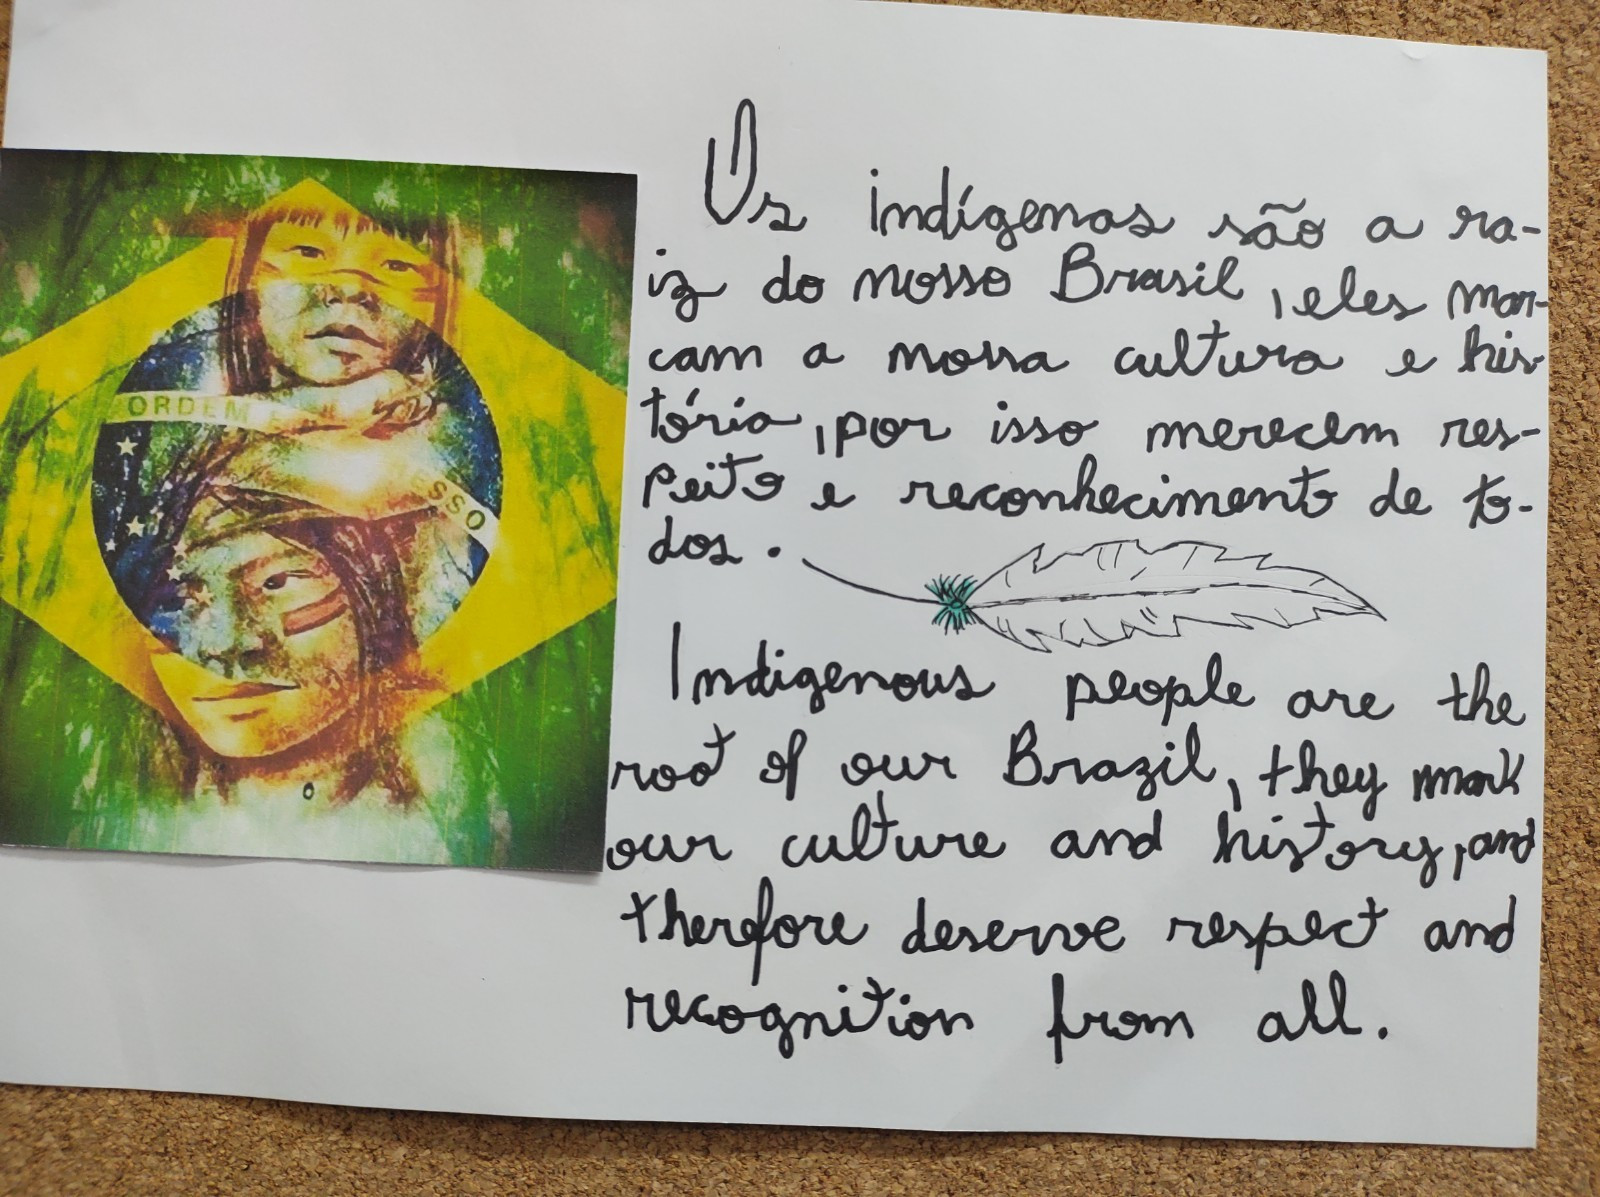 ORDEM E
ESSO
Os indígenas são a ra-
iz do nosso Brasil, eles mar-
cam a nossa cultura e his-
tória, por isso merecem res-
peito e reconhecimento de to-
dos.
Indigenous people are the
root of our Brazil, they mark
our culture and history, and
therefore deserve respect and
recognition from all.